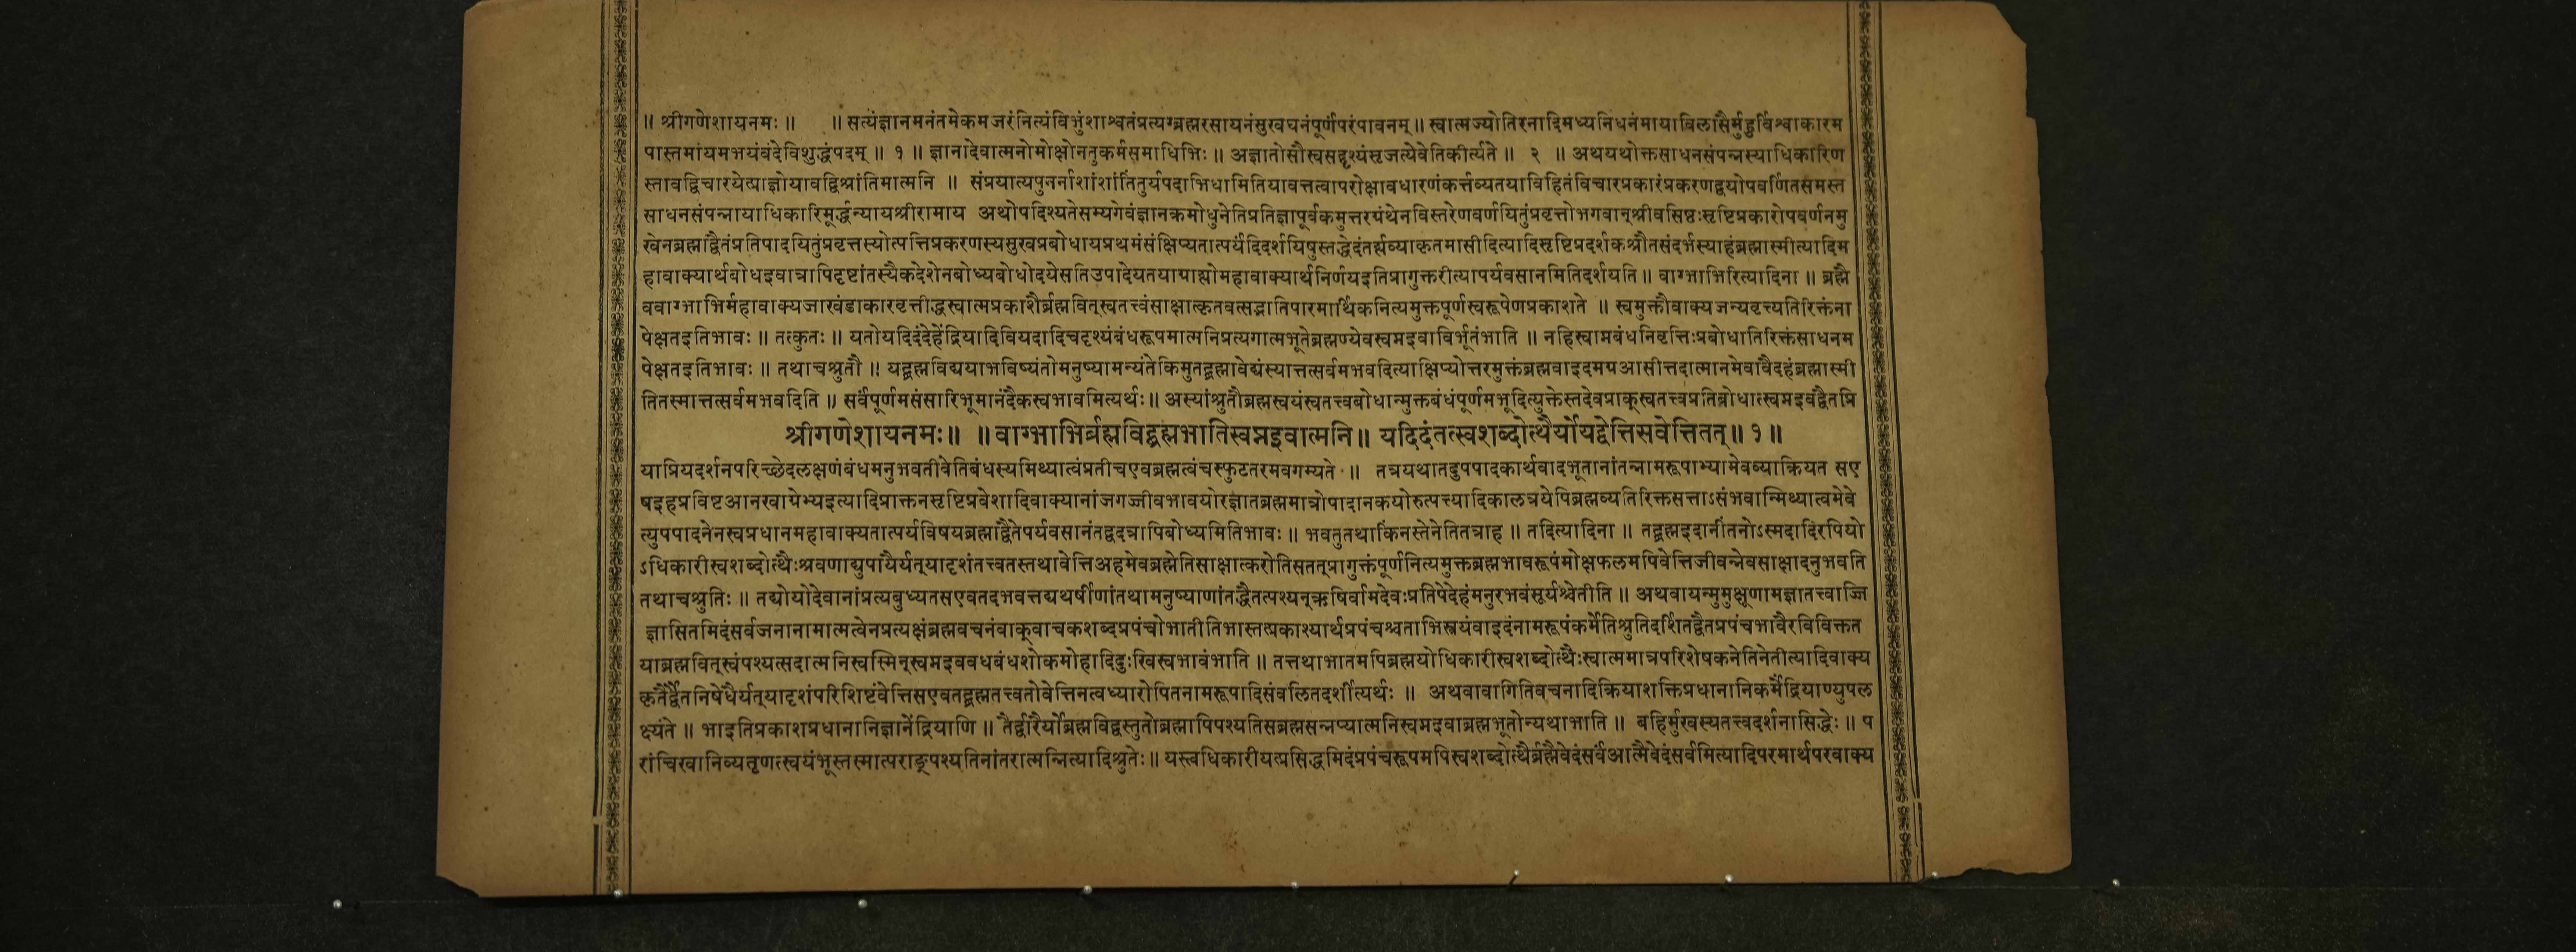 ॥ श्रीगणेशायनमः ॥ ॥ सत्यंज्ञानमनंतमेकमजरंनित्यंविभुंशाश्वतंप्रत्यग्ब्रह्मरसायनंसुखघनंपूर्णंपरंपावनम् ॥ स्वात्मज्योतिरनादिमध्यनिधनंमायाविलासैर्मुहुर्विश्वाकारम
पास्तमायमभयंवंदेविशुद्धंपदम् ॥ १ ॥ ज्ञानादेवात्मनोमोक्षोनतुकर्मसमाधिभिः ॥ अज्ञातोसौस्वसदृश्यंसृजत्येवेतिकीर्त्यते ॥ २ ॥ अथयथोक्तसाधनसंपन्नस्याधिकारिण
स्तावद्विचारयेत्प्राज्ञोयावद्विश्रांतिमात्मनि ॥ संप्रयात्यपुनर्नाशांशांतिंतुर्यपदाभिधामितियावत्तत्वापरोक्षावधारणंकर्त्तव्यतयाविहितंविचारप्रकारंप्रकरणद्वयोपवर्णितसमस्त
साधनसंपन्नायाधिकारिमूर्द्धन्यायश्रीरामाय अथोपदिश्यतेसम्यगेवंज्ञानक्रमोधुनेतिप्रतिज्ञापूर्वकमुत्तरग्रंथेनविस्तरेणवर्णयितुंप्रवृत्तोभगवान्श्रीवसिष्ठःसृष्टिप्रकारोपवर्णनमु
खेनब्रह्माद्वैतंप्रतिपादयितुंप्रवृत्तस्योत्पत्तिप्रकरणस्यसुखप्रबोधायप्रथमंसंक्षिप्यतात्पर्यंदिदर्शयिषुस्तद्धेदंतर्ह्यव्याकृतमासीदित्यादिसृष्टिप्रदर्शकश्रौतसंदर्भस्याहंब्रह्मास्मीत्यादिम
हावाक्यार्थबोधइवात्रापिदृष्टांतस्यैकदेशेनबोध्यबोधोदयेसतिउपादेयतयाग्राह्योमहावाक्यार्थनिर्णयइतिप्रागुक्तरीत्यापर्यवसानमितिदर्शयति ॥ वाग्भाभिरित्यादिना ॥ ब्रह्मै
ववाग्भाभिर्महावाक्यजाखंडाकारवृत्तीद्धस्वात्मप्रकाशैर्ब्रह्मवित्स्वतत्त्वंसाक्षात्कृतवत्सद्भातिपारमार्थिकनित्यमुक्तपूर्णस्वरूपेणप्रकाशते ॥ स्वमुक्तौवाक्यजन्यवृत्त्यतिरिक्तंना
पेक्षतइतिभावः ॥ तत्कुतः ॥ यतोयदिदंदेहेंद्रियादिवियदादिचदृश्यंबंधरूपमात्मनिप्रत्यगात्मभूतेब्रह्मण्येवस्वप्नइवाविर्भूतंभाति ॥ नहिस्वाप्नबंधनिवृत्तिःप्रबोधातिरिक्तंसाधनम
पेक्षतइतिभावः ॥ तथाचश्रुतौ ॥ यद्ब्रह्मविद्ययाभविष्यंतोमनुष्यामन्यंतेकिमुतद्ब्रह्मावेद्यंस्यात्तत्सर्वमभवदित्याक्षिप्योत्तरमुक्तंब्रह्मवाइदमग्रआसीत्तदात्मानमेवावैदहंब्रह्मास्मी
तितस्मात्तत्सर्वमभवदिति ॥ सर्वंपूर्णमसंसारिभूमानंदैकस्वभावमित्यर्थः ॥ अस्यांश्रुतौब्रह्मस्वयंस्वतत्त्वबोधान्मुक्तबंधंपूर्णमभूदित्युक्तेस्तदेवप्राक्स्वतत्त्वप्रतिबोधात्स्वप्नइवद्वैतप्रि
श्रीगणेशायनमः ॥ ॥ वाग्भाभिर्ब्रह्मविद्ब्रह्मभातिस्वप्नइवात्मनि ॥ यदिदंतत्स्वशब्दोत्थैर्योयद्वेत्तिसवेत्तितत् ॥ १ ॥
याप्रियदर्शनपरिच्छेदलक्षणंबंधमनुभवतीवेतिबंधस्यमिथ्यात्वंप्रतीचएवब्रह्मत्वंचस्फुटतरमवगम्यते ॥ तत्रयथातदुपपादकार्थवादभूतानांतन्नामरूपाभ्यामेवव्याक्रियत सए
षइहप्रविष्टआनखाग्रेभ्यइत्यादिप्राक्तनसृष्टिप्रवेशादिवाक्यानांजगज्जीवभावयोरज्ञातब्रह्ममात्रोपादानकयोरुत्पत्त्यादिकालत्रयेपिब्रह्मव्यतिरिक्तसत्ताऽसंभवान्मिथ्यात्वमेवे
त्युपपादनेनस्वप्रधानमहावाक्यतात्पर्यविषयब्रह्माद्वैतेपर्यवसानंतद्वदत्रापिबोध्यमितिभावः ॥ भवतुतथाकिंनस्तेनेतितत्राह ॥ तदित्यादिना ॥ तद्ब्रह्मइदानींतनोऽस्मदादिरपियो
ऽधिकारीस्वशब्दोत्थैःश्रवणाद्युपायैर्यत्यादृशंतत्त्वतस्तथावेत्तिअहमेवब्रह्मेतिसाक्षात्करोतिसतत्प्रागुक्तंपूर्णनित्यमुक्तब्रह्मभावरूपंमोक्षफलमपिवेत्तिजीवन्नेवसाक्षादनुभवति
तथाचश्रुतिः ॥ तद्योयोदेवानांप्रत्यबुध्यतसएवतदभवत्तद्यथर्षीणांतथामनुष्याणांतद्धैतत्पश्यन्ऋषिर्वामदेवःप्रतिपेदेहंमनुरभवंसूर्यश्चेतीति ॥ अथवायन्मुमुक्षूणामज्ञातत्त्वाज्जि
ज्ञासितमिदंसर्वजनानामात्मत्वेनप्रत्यक्षंब्रह्मवचनंवाक्वाचकशब्दप्रपंचोभातीतिभास्तत्प्रकाश्यार्थप्रपंचश्चताभिस्त्रयंवाइदंनामरूपंकर्मेतिश्रुतिदर्शितद्वैतप्रपंचभावैरविविक्तत
याब्रह्मवित्स्वंपश्यत्सदात्मनिस्वस्मिन्स्वप्नइववधबंधशोकमोहादिदुःखिस्वभावंभाति ॥ तत्तथाभातमपिब्रह्मयोधिकारीस्वशब्दोत्थैःस्वात्ममात्रपरिशेषकनेतिनेतीत्यादिवाक्य
कृतैर्द्वैतनिषेधैर्यत्यादृशंपरिशिष्टंवेत्तिसएवतद्ब्रह्मतत्त्वतोवेत्तिनत्वध्यारोपितनामरूपादिसंवलितदर्शीत्यर्थः ॥ अथवावागितिवचनादिक्रियाशक्तिप्रधानानिकर्मेंद्रियाण्युपल
क्ष्यंते ॥ भाइतिप्रकाशप्रधानानिज्ञानेंद्रियाणि ॥ तैर्द्वारैर्योब्रह्मविद्वस्तुतोब्रह्मापिपश्यतिसब्रह्मसन्नप्यात्मनिस्वप्नइवाब्रह्मभूतोन्यथाभाति ॥ बहिर्मुखस्यतत्त्वदर्शनासिद्धेः ॥ प
रांचिखानिव्यतृणत्स्वयंभूस्तस्मात्पराङ्पश्यतिनांतरात्मन्नित्यादिश्रुतेः ॥ यस्त्वधिकारीयत्प्रसिद्धमिदंप्रपंचरूपमपिस्वशब्दोत्थैर्ब्रह्मैवेदंसर्वंआत्मैवेदंसर्वमित्यादिपरमार्थपरवाक्य